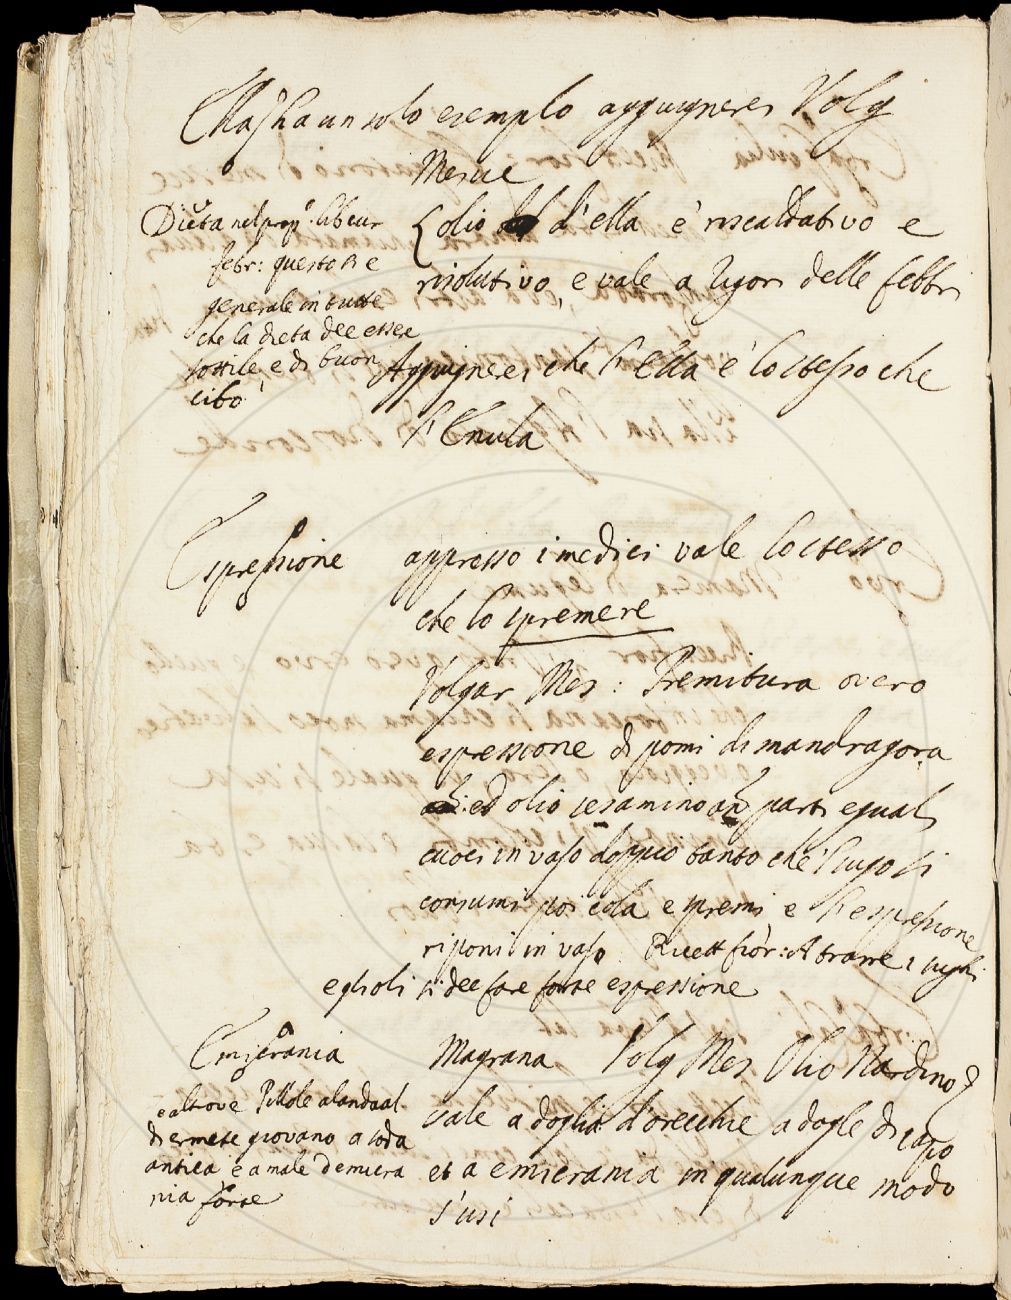 Ella ha un solo esemplo aggiugnerei Volg
Mesue
olio d'ella è riscaldativo e
risolutivo, e vale a rigori delle febbri
Dieta nel prop° lib cur
febr: questo si è
generale in tutte
che la dieta dee essere
sottile e di buon
cibo
Aggiugnerei che l'Ella è lo stesso che
l'Enula
Espressione appresso i medici vale lo stesso
che lo spremere
Volgar Mes: Premitura overo
espressione di pomi di mandragora
ed olio sesamino an parti eguali
cuoci in vaso doppio tanto che 'l sugo si
consumi poi cola e spremi e l'espressione
riponi in vaso. Ricett fior: A trarre i sughi
egli si dee fare forte espressione
Emicrania Magrana Volg Mes Olio Nardino
vale a doglia d'orecchie a dogle di capo
et a emicrania in qualunque modo
s'usi
e altrove Pillole alandaal
di ermete giovano a soda
antica e a male d'emicra
nia forte